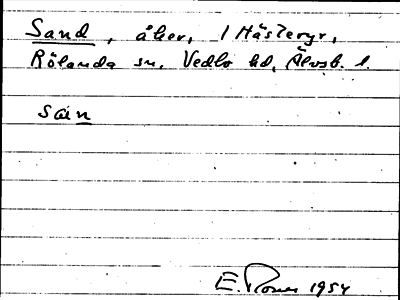 Sand, åker, 1 Hästeryr,
Rölanda sn, Vedbo hd, Älvsb. l.
sáṇ
E. 1954